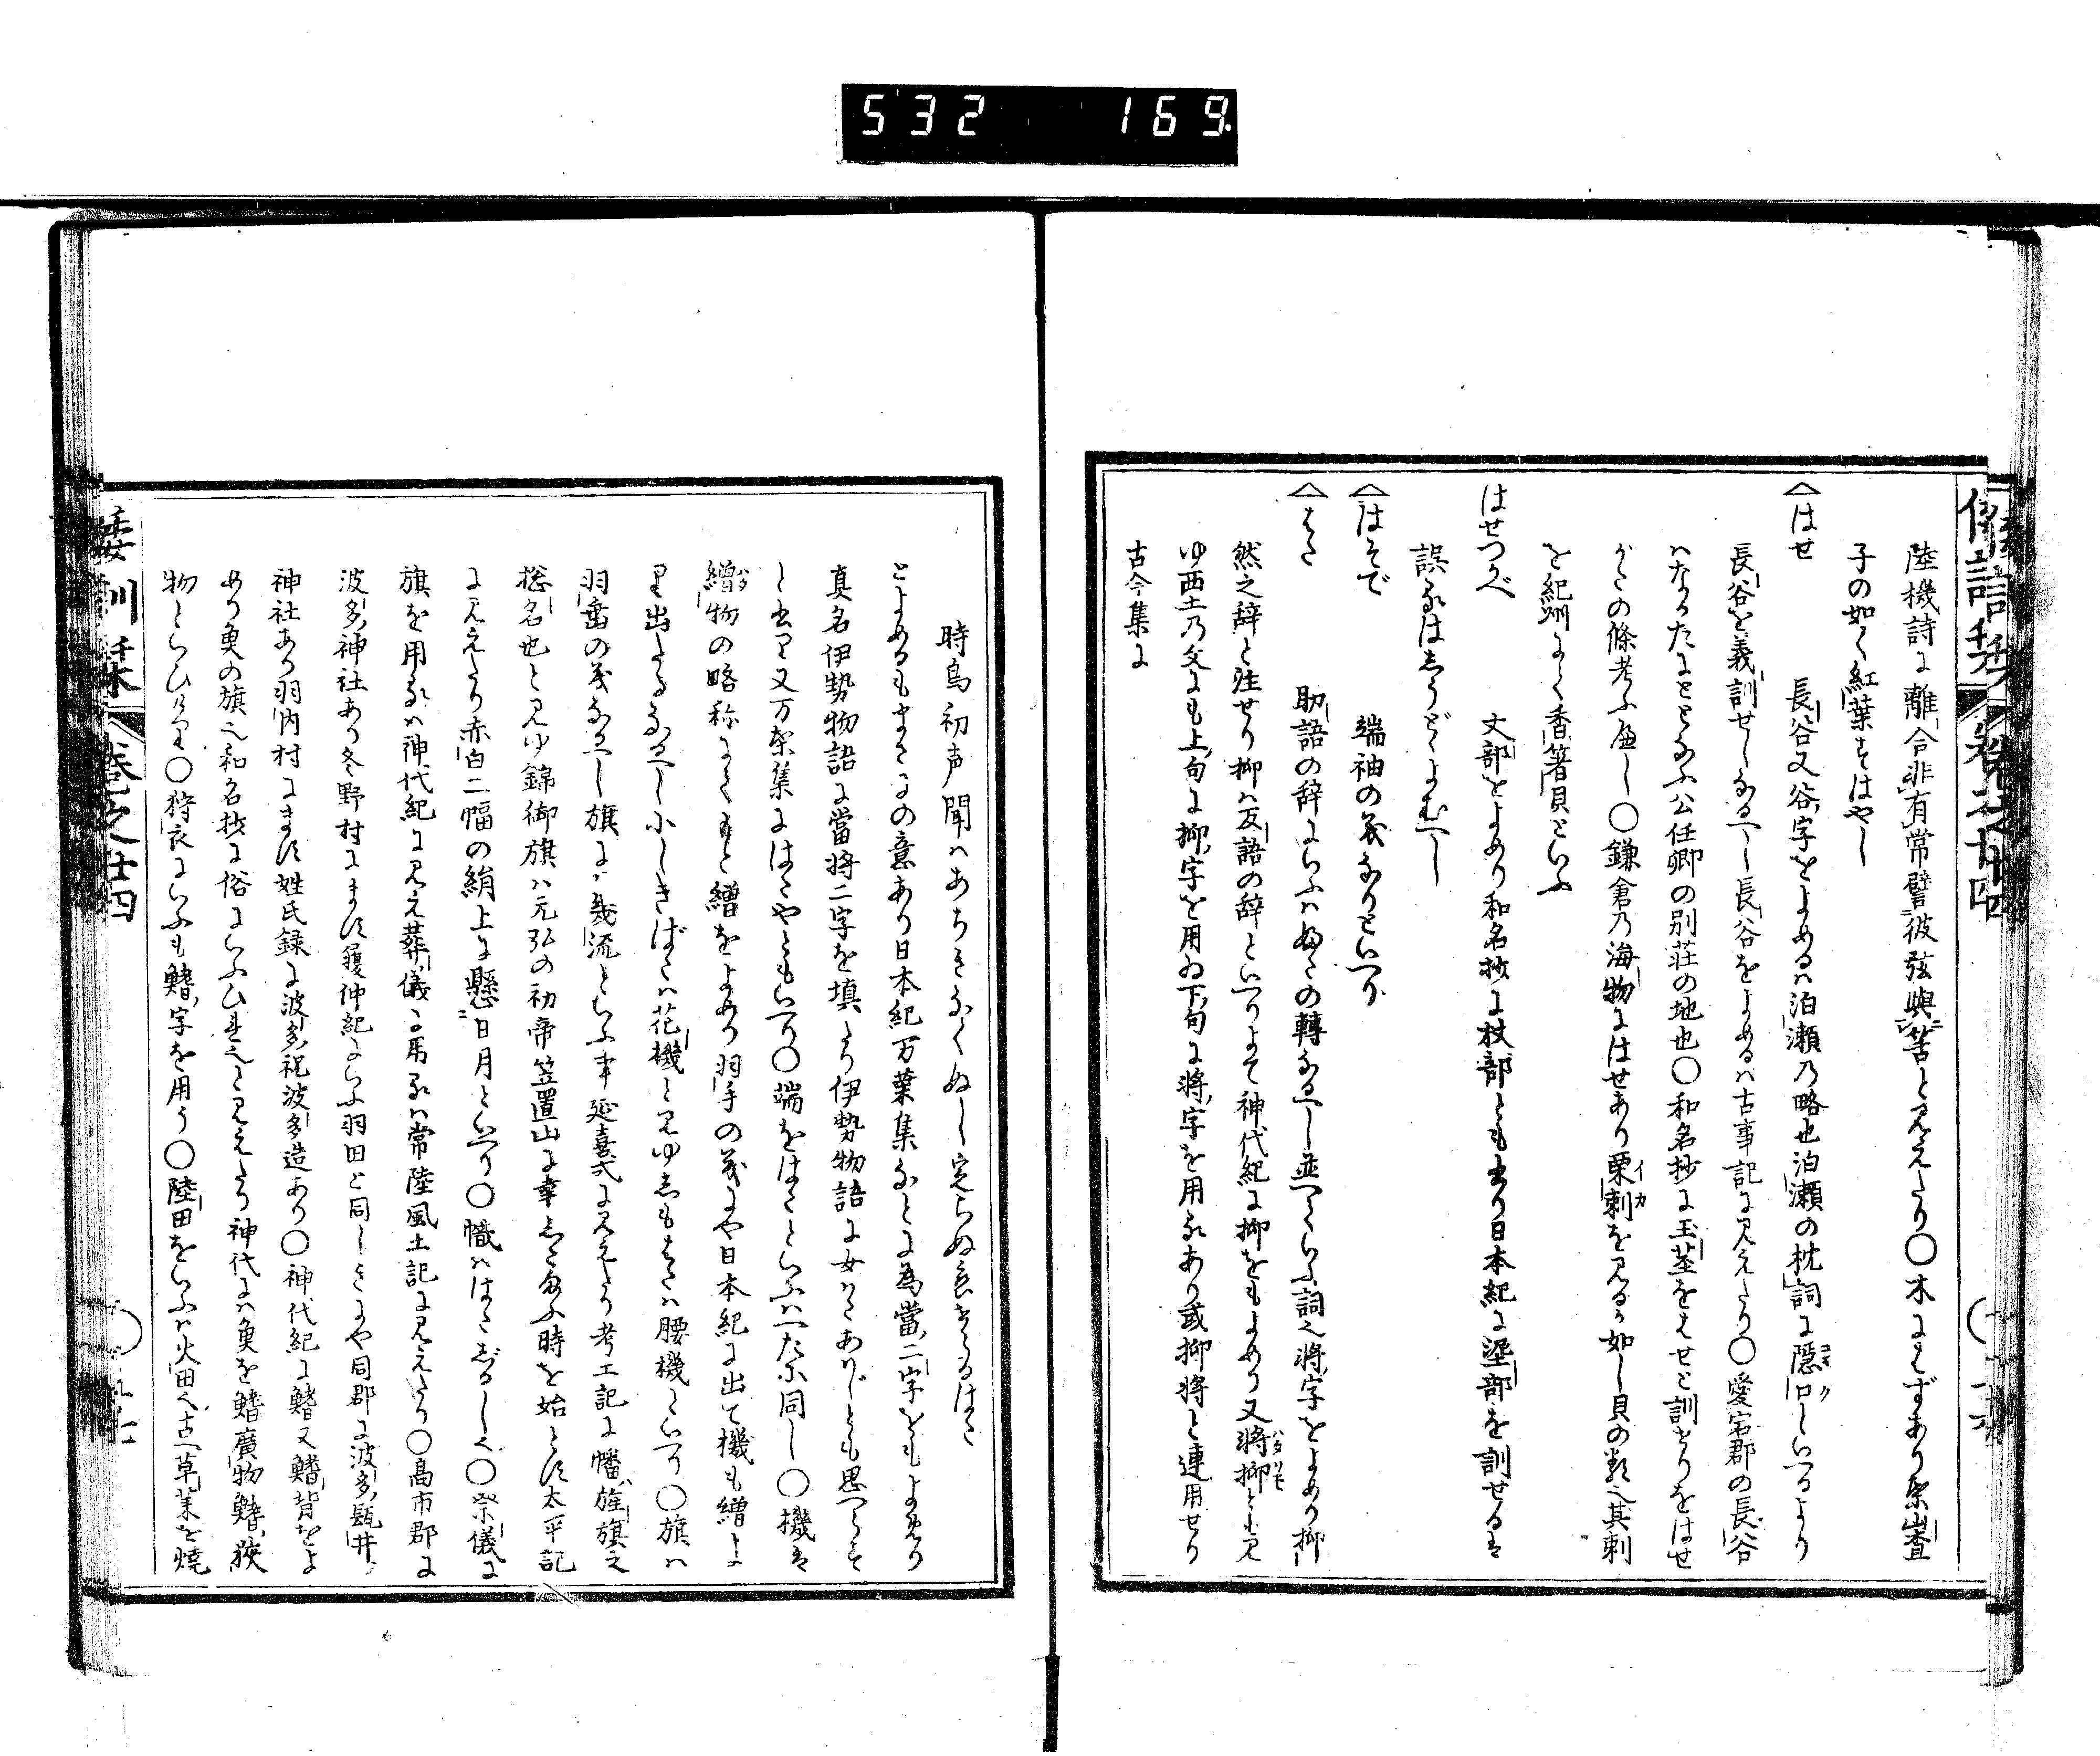 532 169
陸機詩に離合非有常譬彼弦與筈と見えたり〇木にはずあり棠山査
子の如く紅葉すはやし
△はせ 長谷又谷字をよめるハ泊瀬乃略也泊瀬の枕詞に隠口といるより
長谷を義訓せしなるへし長谷をよめるハ古事記に見えたり〇愛宕郡の長谷
ハながたにととなふ公任卿の別荘の地也〇和名抄に玉茎をはせと訓せりをはせ
がたの條考ふへし〇鎌倉乃海物にはせあり栗刺を見るか如し貝の類也其刺
を紀州にて香箸貝といふ
はせつかべ 丈部をよめり和名抄に杖部とも書り日本紀に埿部を訓せるは
誤なるはしうどとよむへし
△はそで 端袖の義なりといへり
△はた 助語の辞にいふハまたの轉なるへし並へていふ詞也将字をよめり抑
然之辞と注せり抑ハ反語の辞といへりよて神代紀に抑をもよめり又将抑とも見
ゆ西土乃文にも上句に抑字を用ゐ下句に将字を用るあり或抑将と連用せり
古今集に
時鳥初声聞ハあちきなくぬし定らぬ恋せらるはた
とよめるもまさにの意あり日本紀万葉集なとに為當二字をもよめり
真名伊勢物語に當将二字を填たり伊勢物語に女はたあハじとも思へらす
と書り又万葉集にはたやともいへり〇端をはたといふハへた尓同し〇機は
繒物の略称にてもと繒をよめり羽手の義にや日本紀に出て機も繒より
り出たるなるへし小しきばたハ花機と見ゆしもはたハ腰機といへり〇旗ハ
羽畨の義なるへし旗にハ幾流といふ事延喜式に見えたり考工記に幡ハ旌旗之
総名也と見ゆ錦御旗ハ元弘の初帝笠置山に幸したまふ時を始とす太平記
に見えたり赤白二幅の絹上に懸日月といへり〇幟ハはたじるし也〇祭儀に
旗を用るハ神代紀に見え葬儀に用るハ常陸風土記に見えたり〇高市郡に
波多神社あり冬野村にます履仲紀にいふ羽田と同しきにや同郡に波多甕井
神社あり羽内村にます姓氏録に波多祝波多造あり〇神代紀に鰭又鰭背をよ
めり魚の旗也和名抄に俗にいふひれ也と見えたり神代にハ魚を鰭廣物鰭狭
物といひたり〇狩衣にいふも鰭字を用う〇陸田をいふハ火田也古へ草莱を焼
倭訓栞 巻之廿四